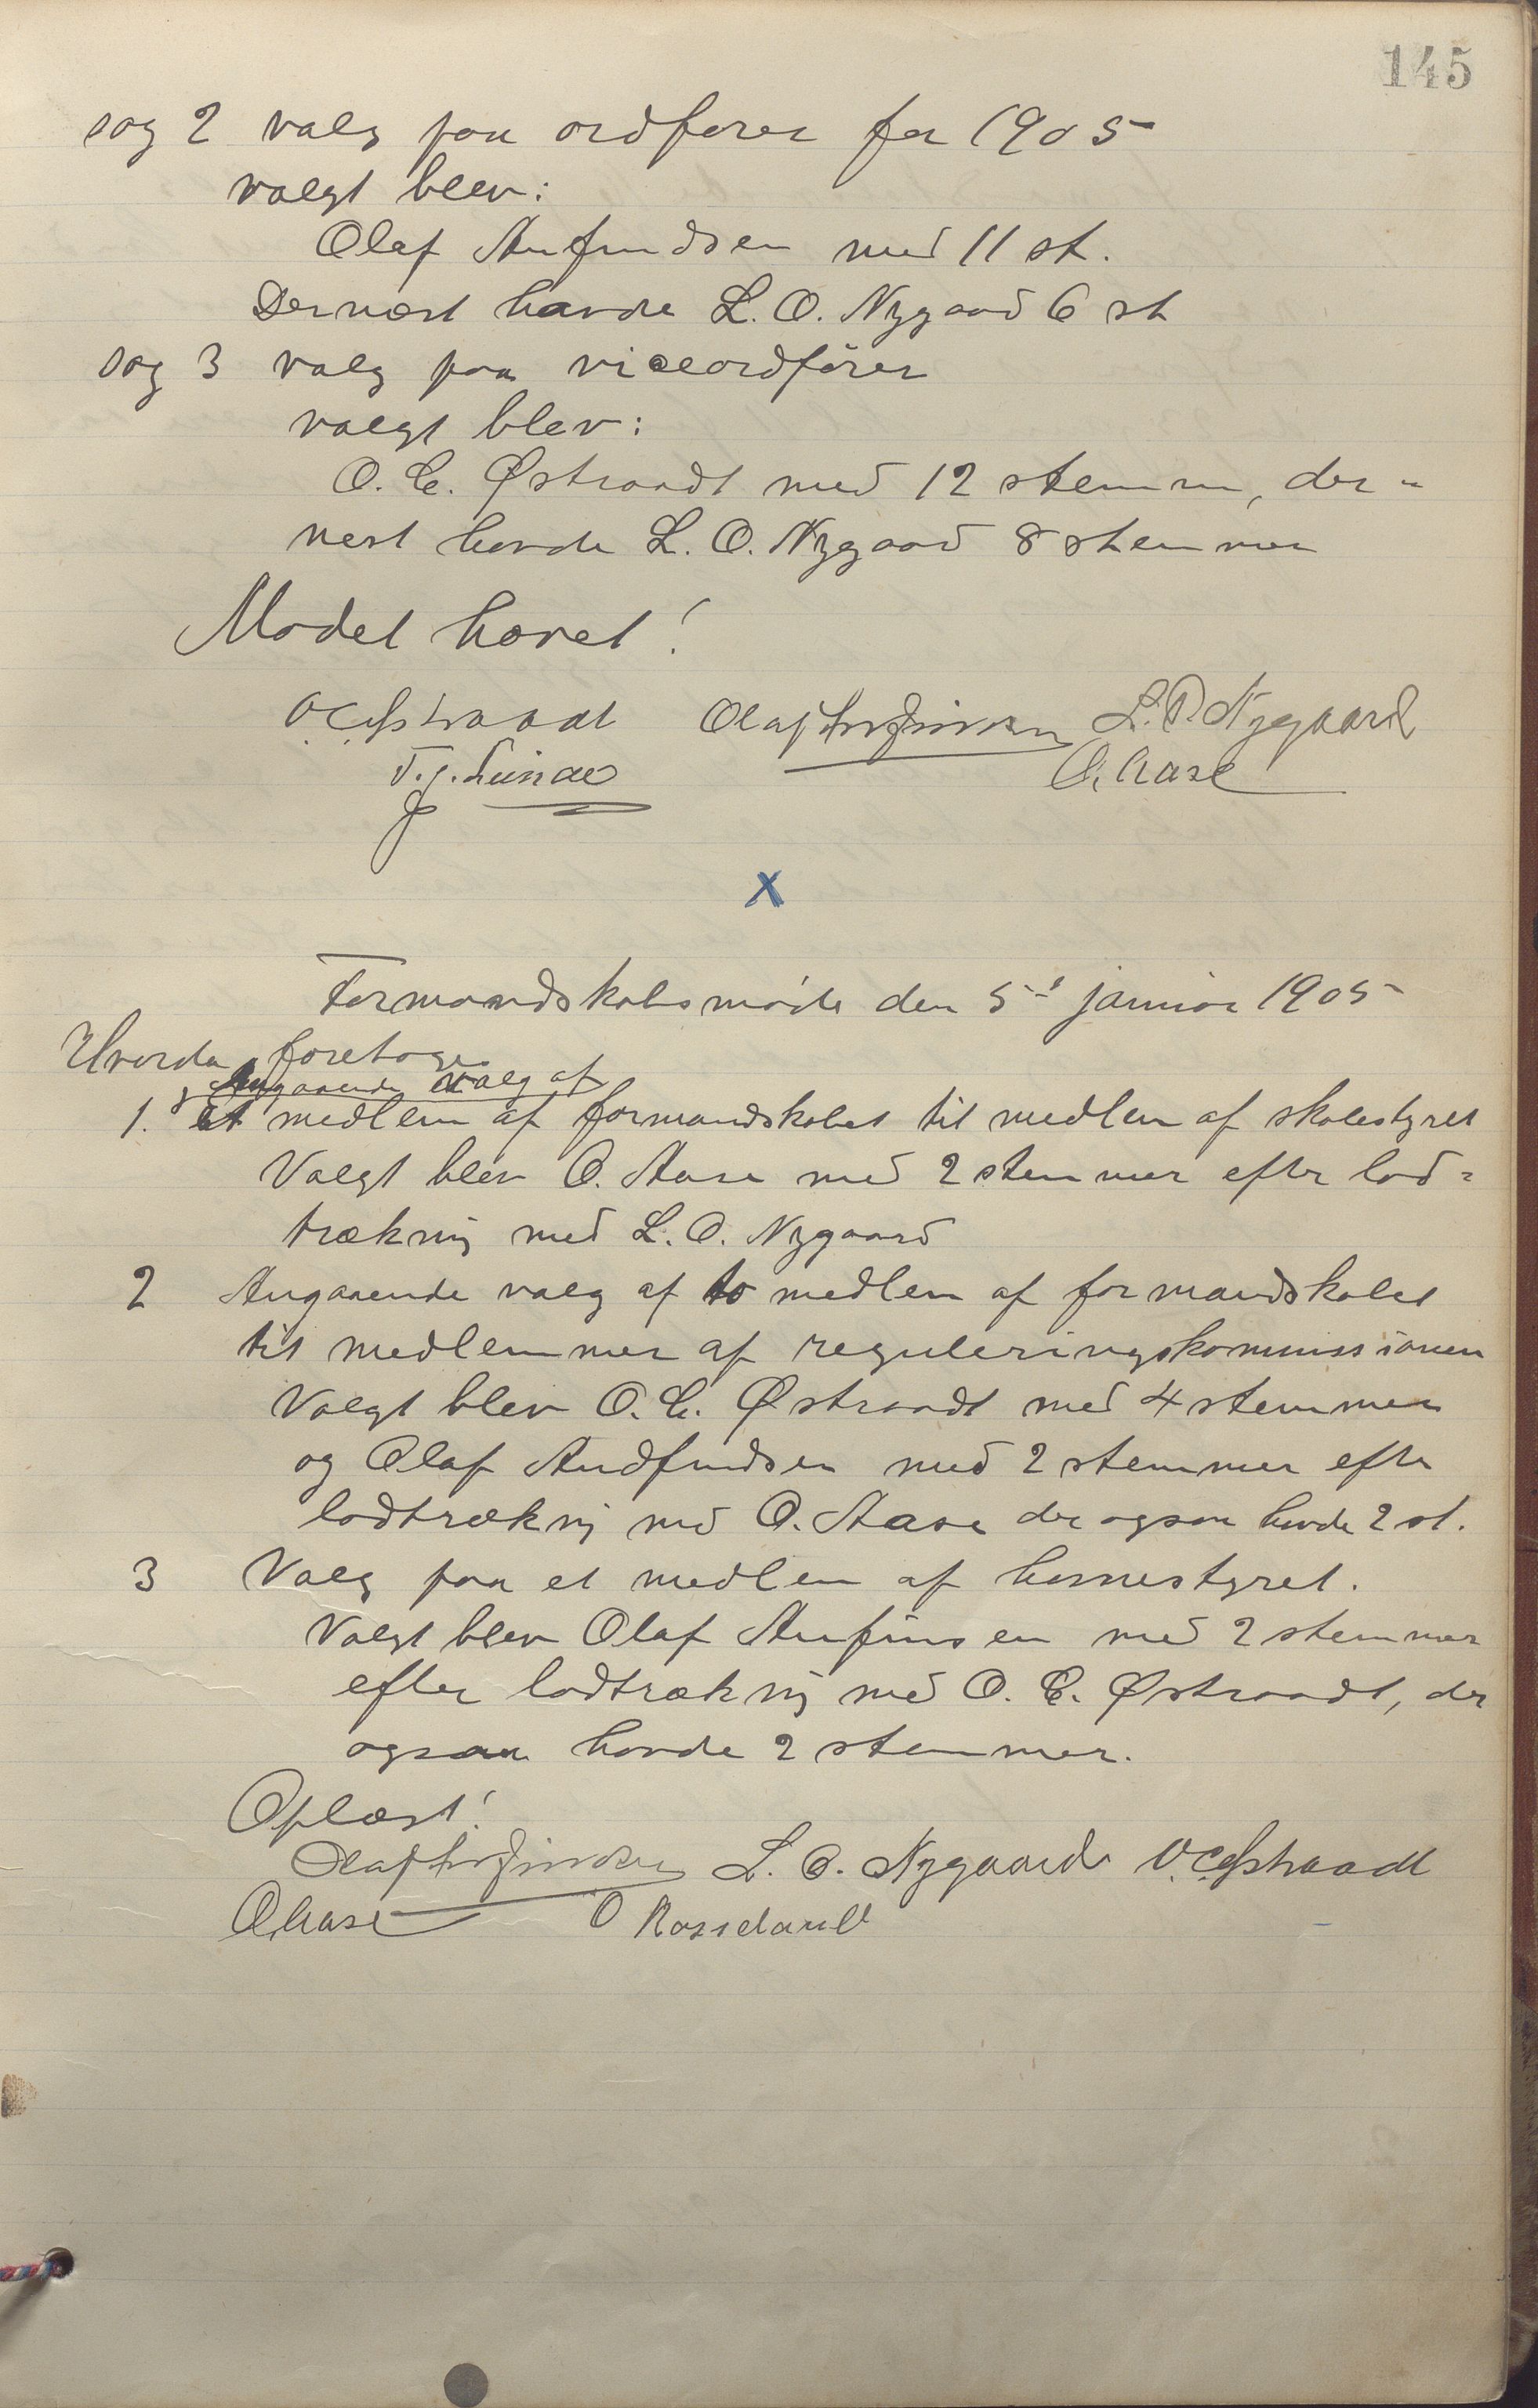 145
sag 2 valg paa ordfører for 1905
valgt blev:
Olaf Anfindsen med 11 st.
Dernæst havde L. O. Nygaard 6 st
sag 3 valg paa viceordfører
valgt blev:
O. C. Østraadt med 12 stemmer, der-
nest havde L. O. Nygaard 8 stemmer
Mødet hævet!
O. C. Østraadt Olaf Anfindsen L. O. Nygaard
T. J. Lunde O. Aase
X
Formandskabsmøde den 5te januar 1905
Hvorda foretoges
Angaaende valg af
1. et medlem af formandskabet til medlem af skolestyret
Valgt blev O. Aase med 2 stemmer efter lod=
trækning med L. O. Nygaard
2 Angaaende valg af to medlem af formandskabet
til medlemmer af reguleringskommissionen
Valgt blev O. C. Østraadt med 4 stemmer
og Olaf Andfindsen med 2 stemmer efter
lodtrækning med O. Aase der ogsaa havde 2 st.
3 Valg paa et medlem af havnestyret.
Valgt blev Olaf Anfinsen med 2 stemmer
efter lodtrækning med O. C. Østraadt, der
ogsaa havde 2 stemmer.
Oplæst!
Olaf Anfindsen L. O. Nygaard O. C. Østraadt
O. Aase O Rosseland